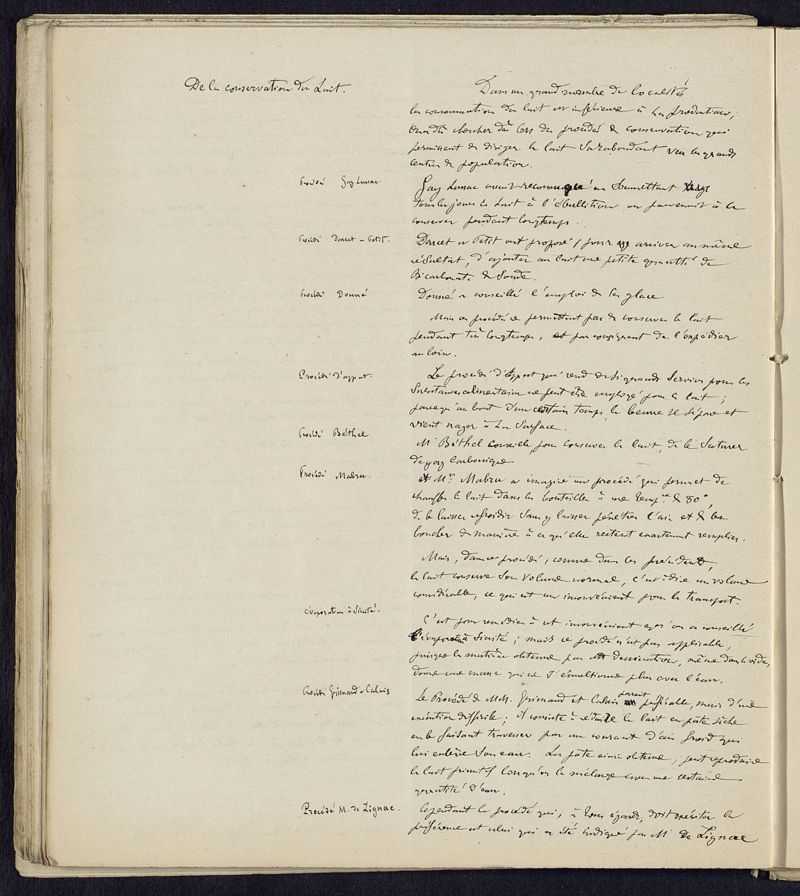 De la conservation du Lait.
Dans un grand nombre de localités
la consommation du lait est inférieure à la production;
on a dû chercher dès lors des procédés de conservation qui
permissent de diriger le lait surabondant vers les grands
centres de population.
Procédé Gay Lussac
Gay Lussac avait reconnu qu'en soumettant
tous les jours le lait à l'ébullition on parvenait à le
conserver pendant longtemps.
Procédé Darcet et Petit.
Darcet et Petit ont proposé, pour arriver au même
résultat, d'ajouter au lait une petite quantité de
Bicarbonate de Soude.
Procédé Donné
Donné a conseillé l'emploi de la glace
Mais ces procédés ne permettent pas de conserver le lait
pendant très longtemps, et par conséquent de l'expédier
au loin.
Procédé d'appert.
Le procédé d'Appert qui rend de si grands services pour les
substances alimentaires ne peut être employé pour le lait;
parce qu'au bout d'un certain temps, le beurre se sépare et
vient nager à la surface.
Procédé Béthel
Mr Béthel conseille, pour conserver le lait, de le saturer
de gaz carbonique
Procédé Mabru.
Mr. Mabru a imaginé un procédé qui permet de
chauffer le lait dans les bouteilles à une temp.re de 80°
de le laisser refroidir sans y laisser pénétrer l'air et de les
boucher de manière à ce qu'elles restent exactement remplies.
Mais, dans ce procédé, comme dans les précédents,
le lait conserve son volume normal, c'est-à-dire un volume
considérable, ce qui est un inconvénient pour le transport.
évaporation à siccité.
C'est pour remédier à cet inconvénient qu'on a conseillé
l'évaporation à siccité; mais ce procédé n'est pas applicable,
puisque la matière obtenue par dessiccation, même dans le vide,
donne une masse qui ne s'émulsionne plus avec l'eau.
Procédé Grimaud et Calais
Le Procédé de MM. Grimaud et Calais parait préférable, mais d'une
exécution difficile; il consiste à réduire le lait en pâte sèche
en le faisant traverser par un courant d'air froid qui
lui enlève son eau. La pâte ainsi obtenue, peut reproduire
le lait primitif lorsqu'on la mélange avec une certaine
quantité d'eau.
Procédé M. de Lignac.
Cependant le procédé qui, à tous égards, doit mériter la
préférence est celui qui a été indiqué par M. de Lignac